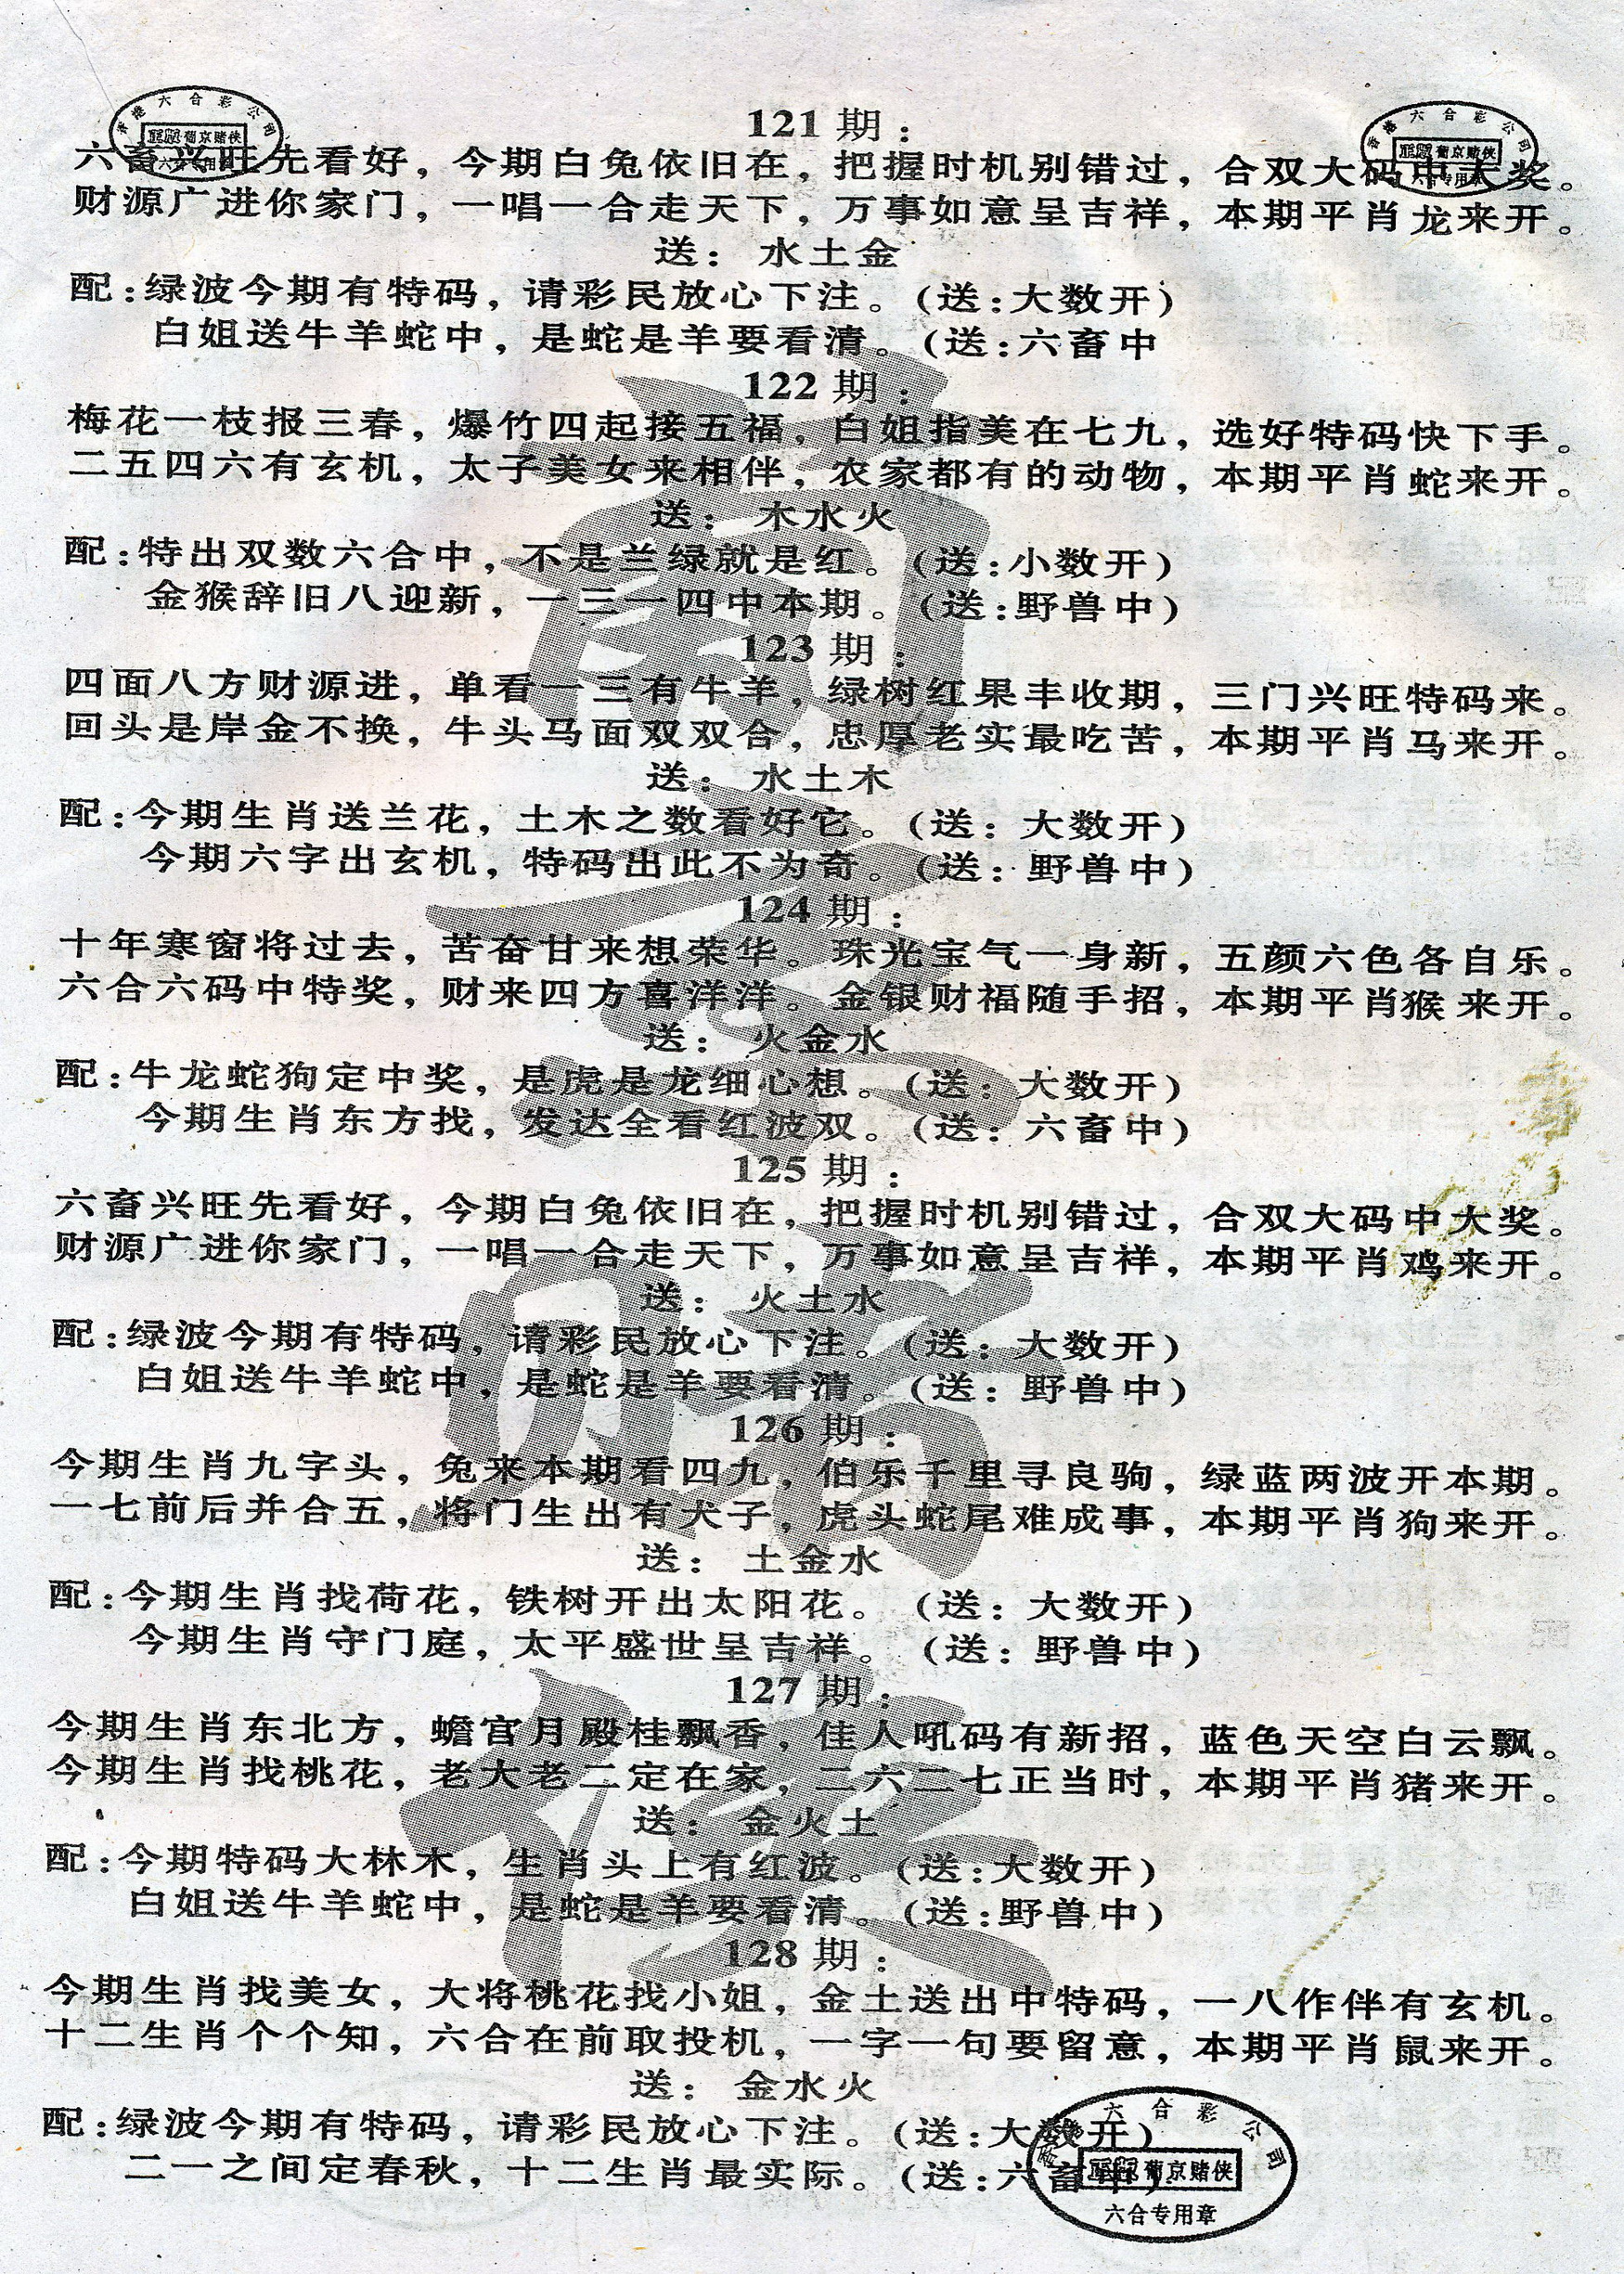 香港六合彩公司
葡京赌侠
六合专用章
香港六合彩公司
葡京赌侠
六合专用章
121 期：
六畜兴旺先看好，今期白兔依旧在，把握时机别错过，合双大码中大奖。
财源广进你家门，一唱一合走天下，万事如意呈吉祥，本期平肖龙来开。
送：水土金
配：绿波今期有特码，请彩民放心下注。(送：大数开)
白姐送牛羊蛇中，是蛇是羊要看清。(送：六畜中
122 期：
梅花一枝报三春，爆竹四起接五福，白姐指美在七九，选好特码快下手。
二五四六有玄机，太子美女来相伴，农家都有的动物，本期平肖蛇来开。
送：木水火
配：特出双数六合中，不是兰绿就是红。(送：小数开)
金猴辞旧八迎新，一三一四中本期。(送：野兽中)
123 期：
四面八方财源进，单看一三有牛羊，绿树红果丰收期，三门兴旺特码来。
回头是岸金不换，牛头马面双双合，忠厚老实最吃苦，本期平肖马来开。
送：水土木
配：今期生肖送兰花，土木之数看好它。(送：大数开)
今期六字出玄机，特码出此不为奇。(送：野兽中)
124 期：
十年寒窗将过去，苦奋甘来想荣华。珠光宝气一身新，五颜六色各自乐。
六合六码中特奖，财来四方喜洋洋。金银财福随手招，本期平肖猴来开。
送：火金水
配：牛龙蛇狗定中奖，是虎是龙细心想。(送：大数开)
今期生肖东方找，发达全看红波双。(送：六畜中)
125 期：
六畜兴旺先看好，今期白兔依旧在，把握时机别错过，合双大码中大奖。
财源广进你家门，一唱一合走天下，万事如意呈吉祥，本期平肖鸡来开。
送：火土水
配：绿波今期有特码，请彩民放心下注。(送：大数开)
白姐送牛羊蛇中，是蛇是羊要看清。(送：野兽中)
126 期：
今期生肖九字头，兔来本期看四九，伯乐千里寻良驹，绿蓝两波开本期。
一七前后并合五，将门生出有犬子，虎头蛇尾难成事，本期平肖狗来开。
送：土金水
配：今期生肖找荷花，铁树开出太阳花。(送：大数开)
今期生肖守门庭，太平盛世呈吉祥。(送：野兽中)
127 期：
今期生肖东北方，蟾宫月殿桂飘香，佳人吼码有新招，蓝色天空白云飘。
今期生肖找桃花，老大老二定在家，二六二七正当时，本期平肖猪来开。
送：金火土
配：今期特码大林木，生肖头上有红波。(送：大数开)
白姐送牛羊蛇中，是蛇是羊要看清。(送：野兽中)
128 期：
今期生肖找美女，大将桃花找小姐，金土送出中特码，一八作伴有玄机。
十二生肖个个知，六合在前取投机，一字一句要留意，本期平肖鼠来开。
送：金水火
配：绿波今期有特码，请彩民放心下注。(送：大数开)
二一之间定春秋，十二生肖最实际。(送：六畜中)
香港六合彩公司
葡京赌侠
六合专用章
葡京赌侠